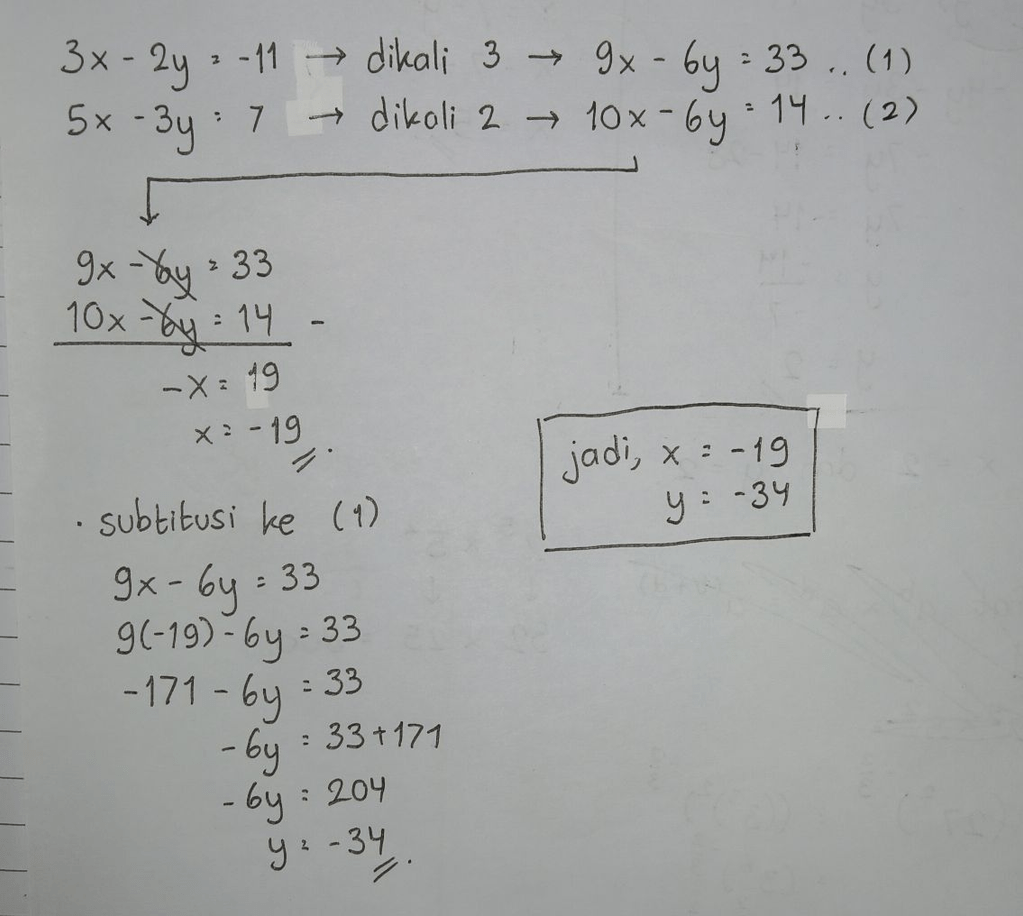 3x - 2y = -11 → dikali 3 → 9x - 6y = 33 .. (1)
5x - 3y = 7 → dikali 2 → 10x - 6y = 14 .. (2)
9x - 6y = 33
10x - 6y = 14 -
-x = 19
x = -19
jadi, x = -19
y = -34
· subtitusi ke (1)
9x - 6y = 33
9(-19) - 6y = 33
-171 - 6y = 33
-6y = 33 + 171
-6y = 204
y = -34